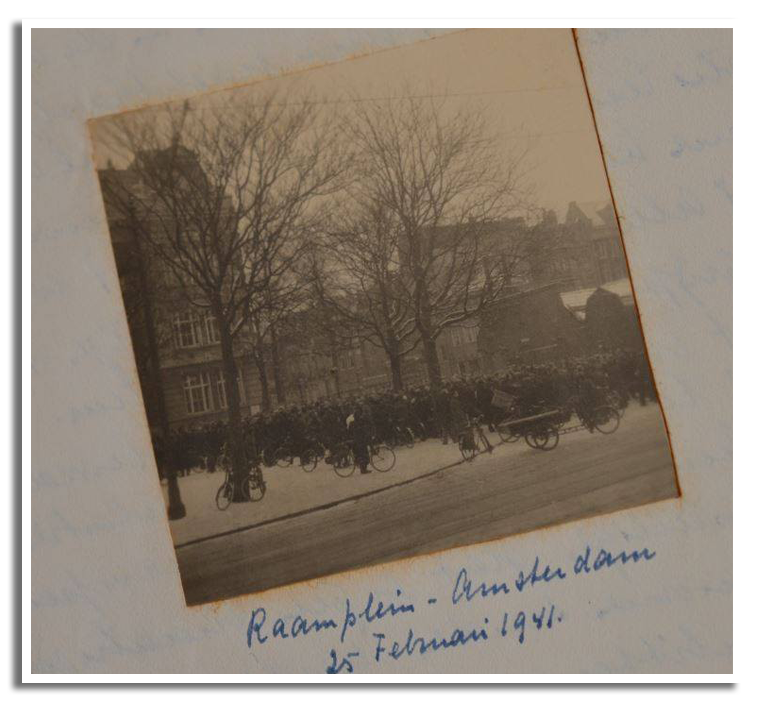 Raamplein - Amsterdam
25 Februari 1941.